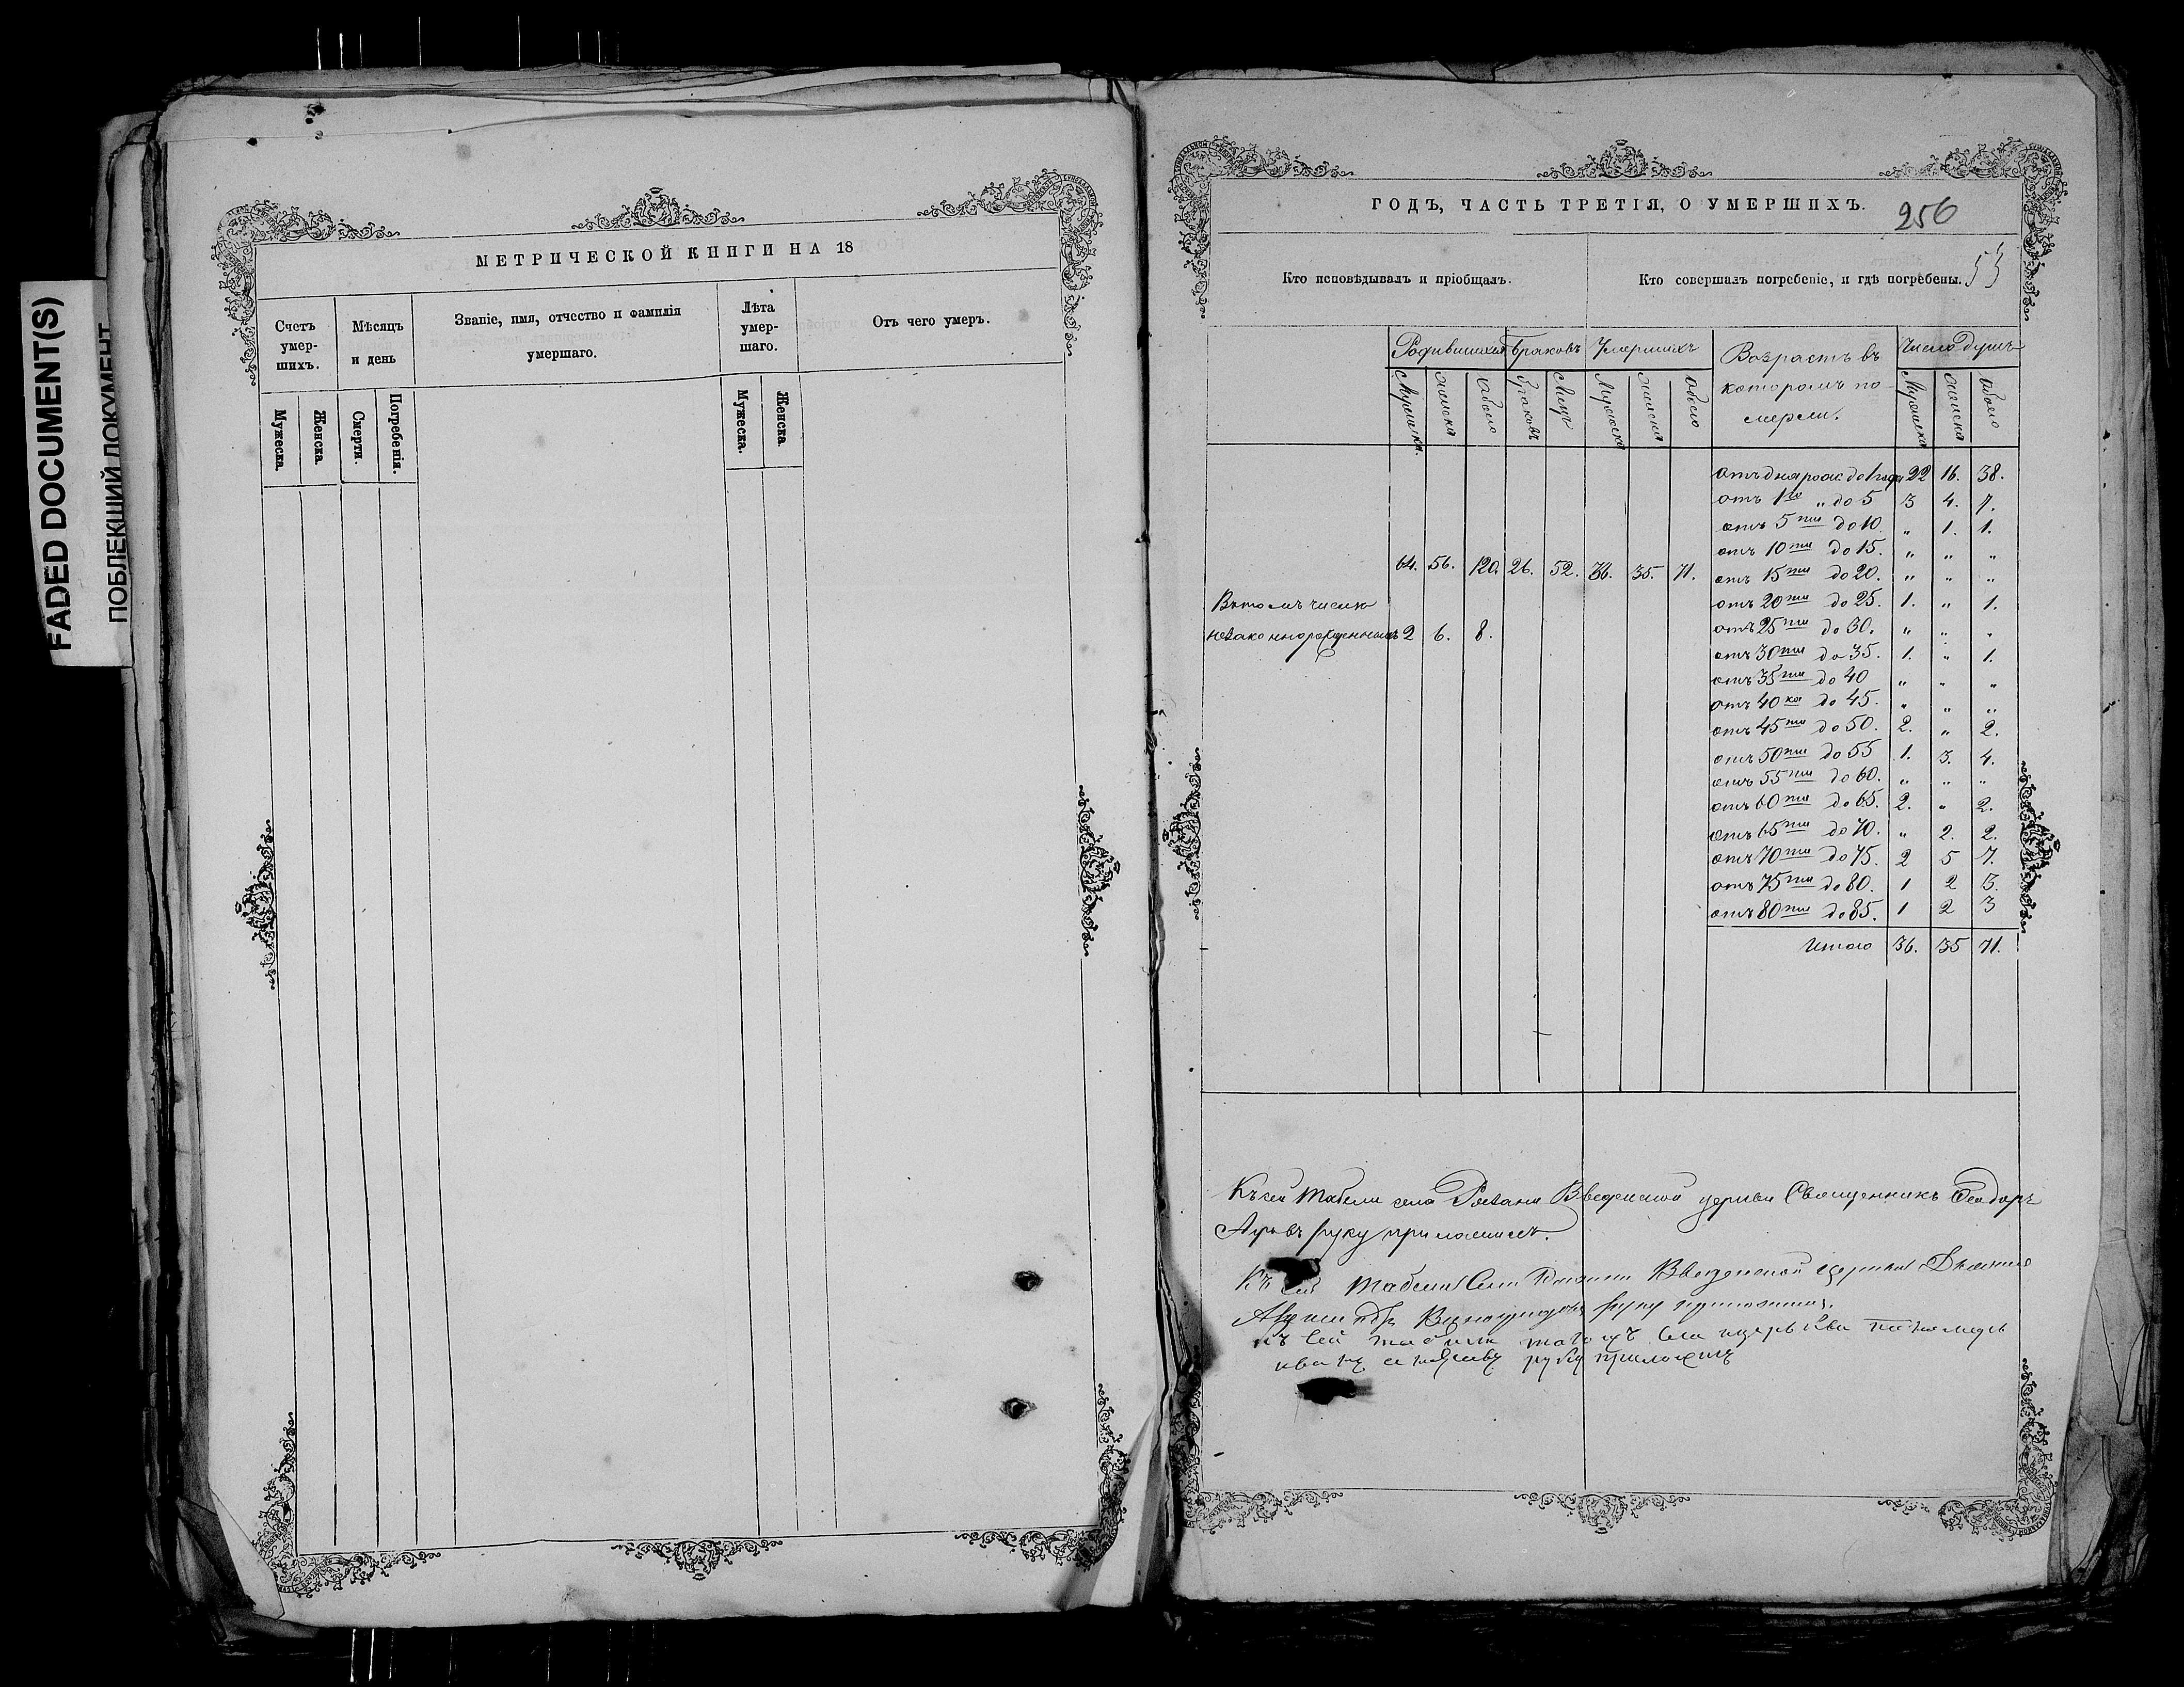 FADED DOCUMENT(S)
ПОБЛЕКШИЙ ДОКУМЕНТ
МЕТРИЧЕСКОЙ КНИГИ НА 18
Счетъ умер-шихъ.
Мѣсяцъ и день
Званіе, имя, отчество и фамилія умершаго.
Лѣта умер-шаго.
Отъ чего умеръ.
Мужеска.
Женска.
Смерти.
Погребенія.
Мужеска.
Женска.
ГОДЪ, ЧАСТЬ ТРЕТІЯ, О УМЕРШИХЪ.
256
Кто исповѣдывалъ и пріобщалъ.
Кто совершалъ погребеніе, и гдѣ погребены.
53
Родившихся Браковъ Умершихъ
Возрастъ въ которомъ по-мерли.
Число душъ
Мужеска. женска обоего Браковъ Мужеска женска обоего Мужеска женска обоего
отъ дня рож. до 1 года 22 16. 38.
отъ 1го „ до 5 3 4. 7.
отъ 5ти до 10 „ 1. 1.
отъ 10ти до 15. „ „ „
64. 56. 120. 26. 52. 36. 35. 71.
отъ 15ти до 20. „ „ „
Въ томъ числѣ
отъ 20ти до 25. 1. „ 1.
незаконнорожденныхъ 2 6. 8.
отъ 25ти до 30. „ „ „
отъ 30ти до 35. 1. „ 1.
отъ 35ти до 40 „ „ „
отъ 40ка до 45. „ „ „
отъ 45ти до 50. 2. „ 2.
отъ 50ти до 55 1. 3. 4.
отъ 55ти до 60. „ „ „
отъ 60ти до 65. 2. „ 2.
отъ 65ти до 70. „ 2. 2.
отъ 70ти до 75. 2 5 7.
отъ 75ти до 80. 1 2 3.
отъ 80ти до 85. 1 2 3
Итого 36. 35 71.
Къ сей табели села Введенской церкви Священникъ Ѳеодоръ
руку приложилъ.
Къ сей табели Введенской церкви
руку приложилъ.
къ сей табели церькви
руку приложилъ